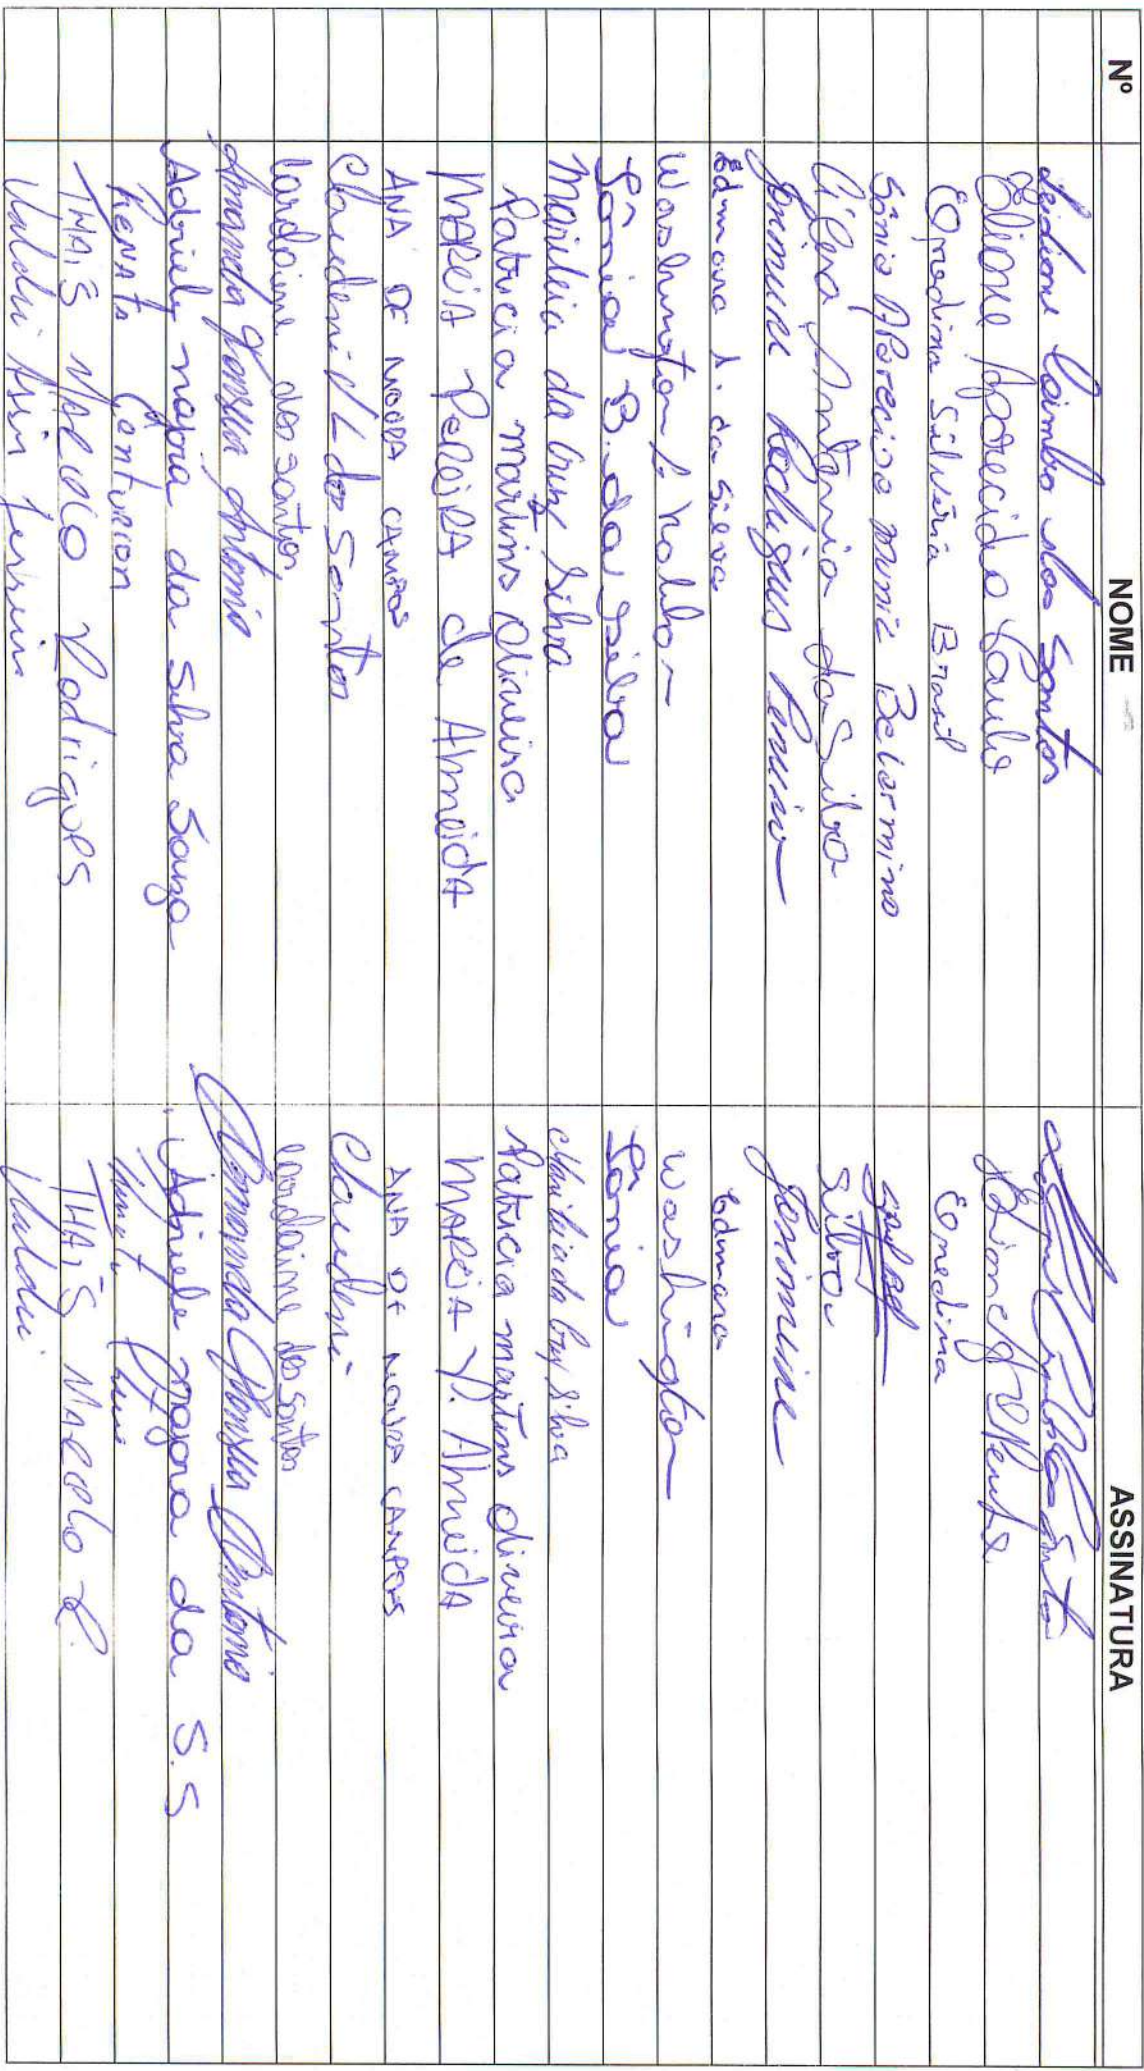 Nº NOME ASSINATURA
Leidiane Coimbra dos Santos
Eliane Aparecida
Enedina Silveira Brasil Enedina
Sônia Aparecida Muniz Belarmino
Cícera Antônia da Silva Silva
Janinine Rodrigues Janinine
Edmara A. da Silva Edmara
Washington Washington
Sônia B. da Silva Sônia
Marileia da Cruz Silva Marileia da Cruz Silva
Patricia martins oliveira Patricia martins oliveira
MARCIA PEREIRA de AlmeidA MARCIA P. AlmeidA
ANA DE MOURA CAMPOS ANA DE MOURA CAMPOS
Claudemi L dos Santos Claudemi
lardiane dos santos lardiane dos Santos
Amanda Antonio Amanda Antonio
Adriely da Silva Souza da S.S
RENATA Centurion
THAIS MARCOLO Rodrigues THAIS MARCOLO R.